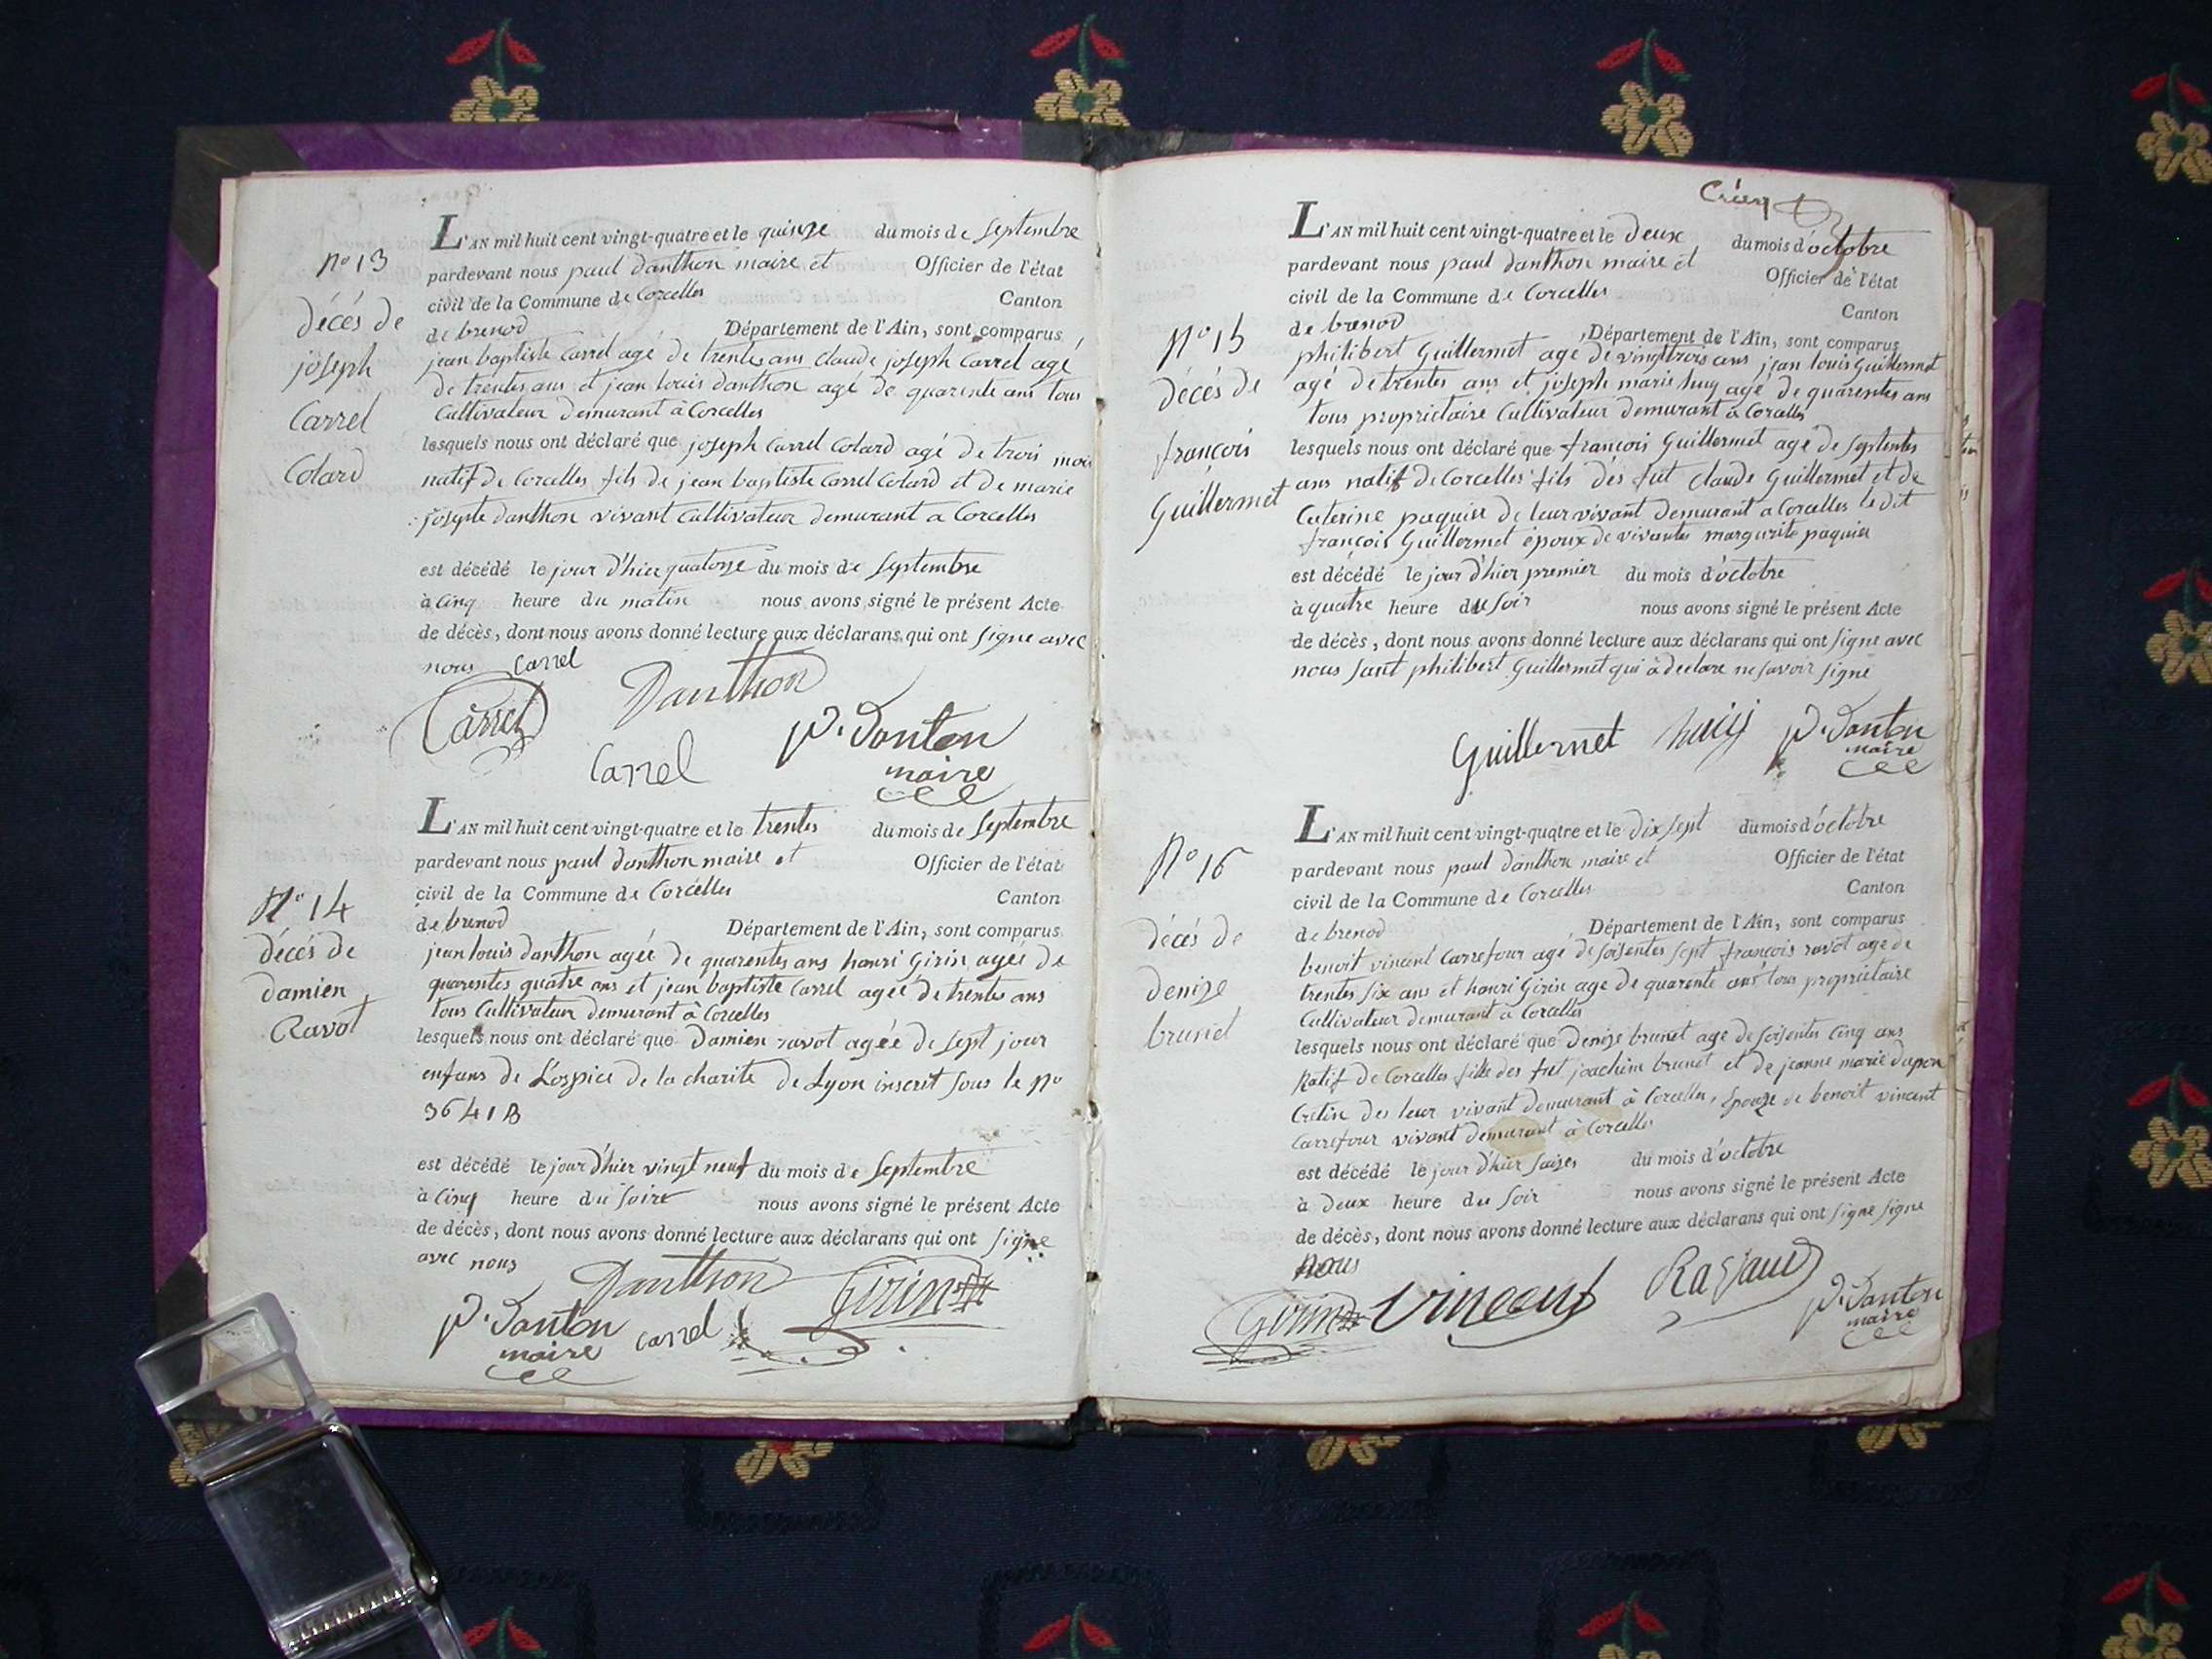 L'AN mil huit cent vingt-quatre et le quinze du mois de septembre
pardevant nous paul danthon maire et Officier de l'état
civil de la Commune de Corcelles Canton
de brenod Département de l'Ain, sont comparus
jean baptiste Carrel agé de trentes ans claude joseph Carrel agé
de trentes ans et jean louis danthon agé de quarente ans tous
Cultivateur demurant à Corcelles
lesquels nous ont déclaré que joseph Carrel Colard agé de trois mois
natif de Corcelles fils de jean baptiste Carrel Colard et de marie
josepte danthon vivant Cultivateur demurant a Corcelles
est décédé le jour d'hier quatorze du mois de septembre
à cinq heure du matin nous avons signé le présent Acte
de décès, dont nous avons donné lecture aux déclarans qui ont signe avec
nous Carrel
Carrel Danthon
Carrel P. Danton
maire
N° 13
décés de
joseph
Carrel
Colard
L'AN mil huit cent vingt-quatre et le trentes du mois de septembre
pardevant nous paul danthon maire et Officier de l'état
civil de la Commune de Corcelles Canton
de brenod Département de l'Ain, sont comparus
jean louis danthon agée de quarentes ans henri Girin agée de
quarentes quatre ans et jean baptiste Carrel agée de trentes ans
tous Cultivateur demurant à Corcelles
lesquels nous ont déclaré que Damien ravot agée de sept jour
enfans de L'ospice de la charite de Lyon inscrit sous le n°
3641B
est décédé le jour d'hier vingt neuf du mois de septembre
à cinq heure du soire nous avons signé le présent Acte
de décès, dont nous avons donné lecture aux déclarans qui ont signe
avec nous
Danthon Girin
P. Danton Carrel
maire
N° 14
décés de
damien
Ravot
L'AN mil huit cent vingt-quatre et le deux du mois d'octobre
pardevant nous paul danthon maire et Officier de l'état
civil de la Commune de Corcelles Canton
de brenod Département de l'Ain, sont comparus
philibert Guillermet age de vingt trois ans jean louis Guillermet
agé de trentes ans et joseph marie huy agé de quarentes ans
tous proprietaire Cultivateur demurant à Corcelles
lesquels nous ont déclaré que françois Guillermet agé de septentes
ans natif de Corcelles fils des fut claude Guillermet et de
Caterine paquier de leur vivant demurant a Corcelles le dit
françois Guillermet époux de vivantes margurite paquier
est décédé le jour d'hier premier du mois d'octobre
à quatre heure du soir nous avons signé le présent Acte
de décès, dont nous avons donné lecture aux déclarans qui ont signe avec
nous sauf philibert Guillermet qui à declare ne savoir signe
Guillermet huy P. Danton
maire
N° 15
décés de
françois
Guillermet
L'AN mil huit cent vingt-quatre et le dix sept du mois d'octobre
pardevant nous paul danthon maire et Officier de l'état
civil de la Commune de Corcelles Canton
de brenod Département de l'Ain, sont comparus
benoit vincent Carrefour agé de soisentes sept françois ravot age de
trentes six ans et henri Girin age de quarente ans tous proprietaire
Cultivateur demurant à Corcelles
lesquels nous ont déclaré que denize brunet age de soisentes cinq ans
Natif de Corcelles fille des fut joachim brunet et de jeanne marie dapon
Cretin des leur vivant demurant à Corcelles, épouze de benoit vincent
Carrefour vivant demurant à Corcelles
est décédé le jour d'hier saizes du mois d'octobre
à deux heure du soir nous avons signé le présent Acte
de décès, dont nous avons donné lecture aux déclarans qui ont signe signe
nous
Girin Vincent P. Danton
maire
N° 16
décés de
denize
brunet